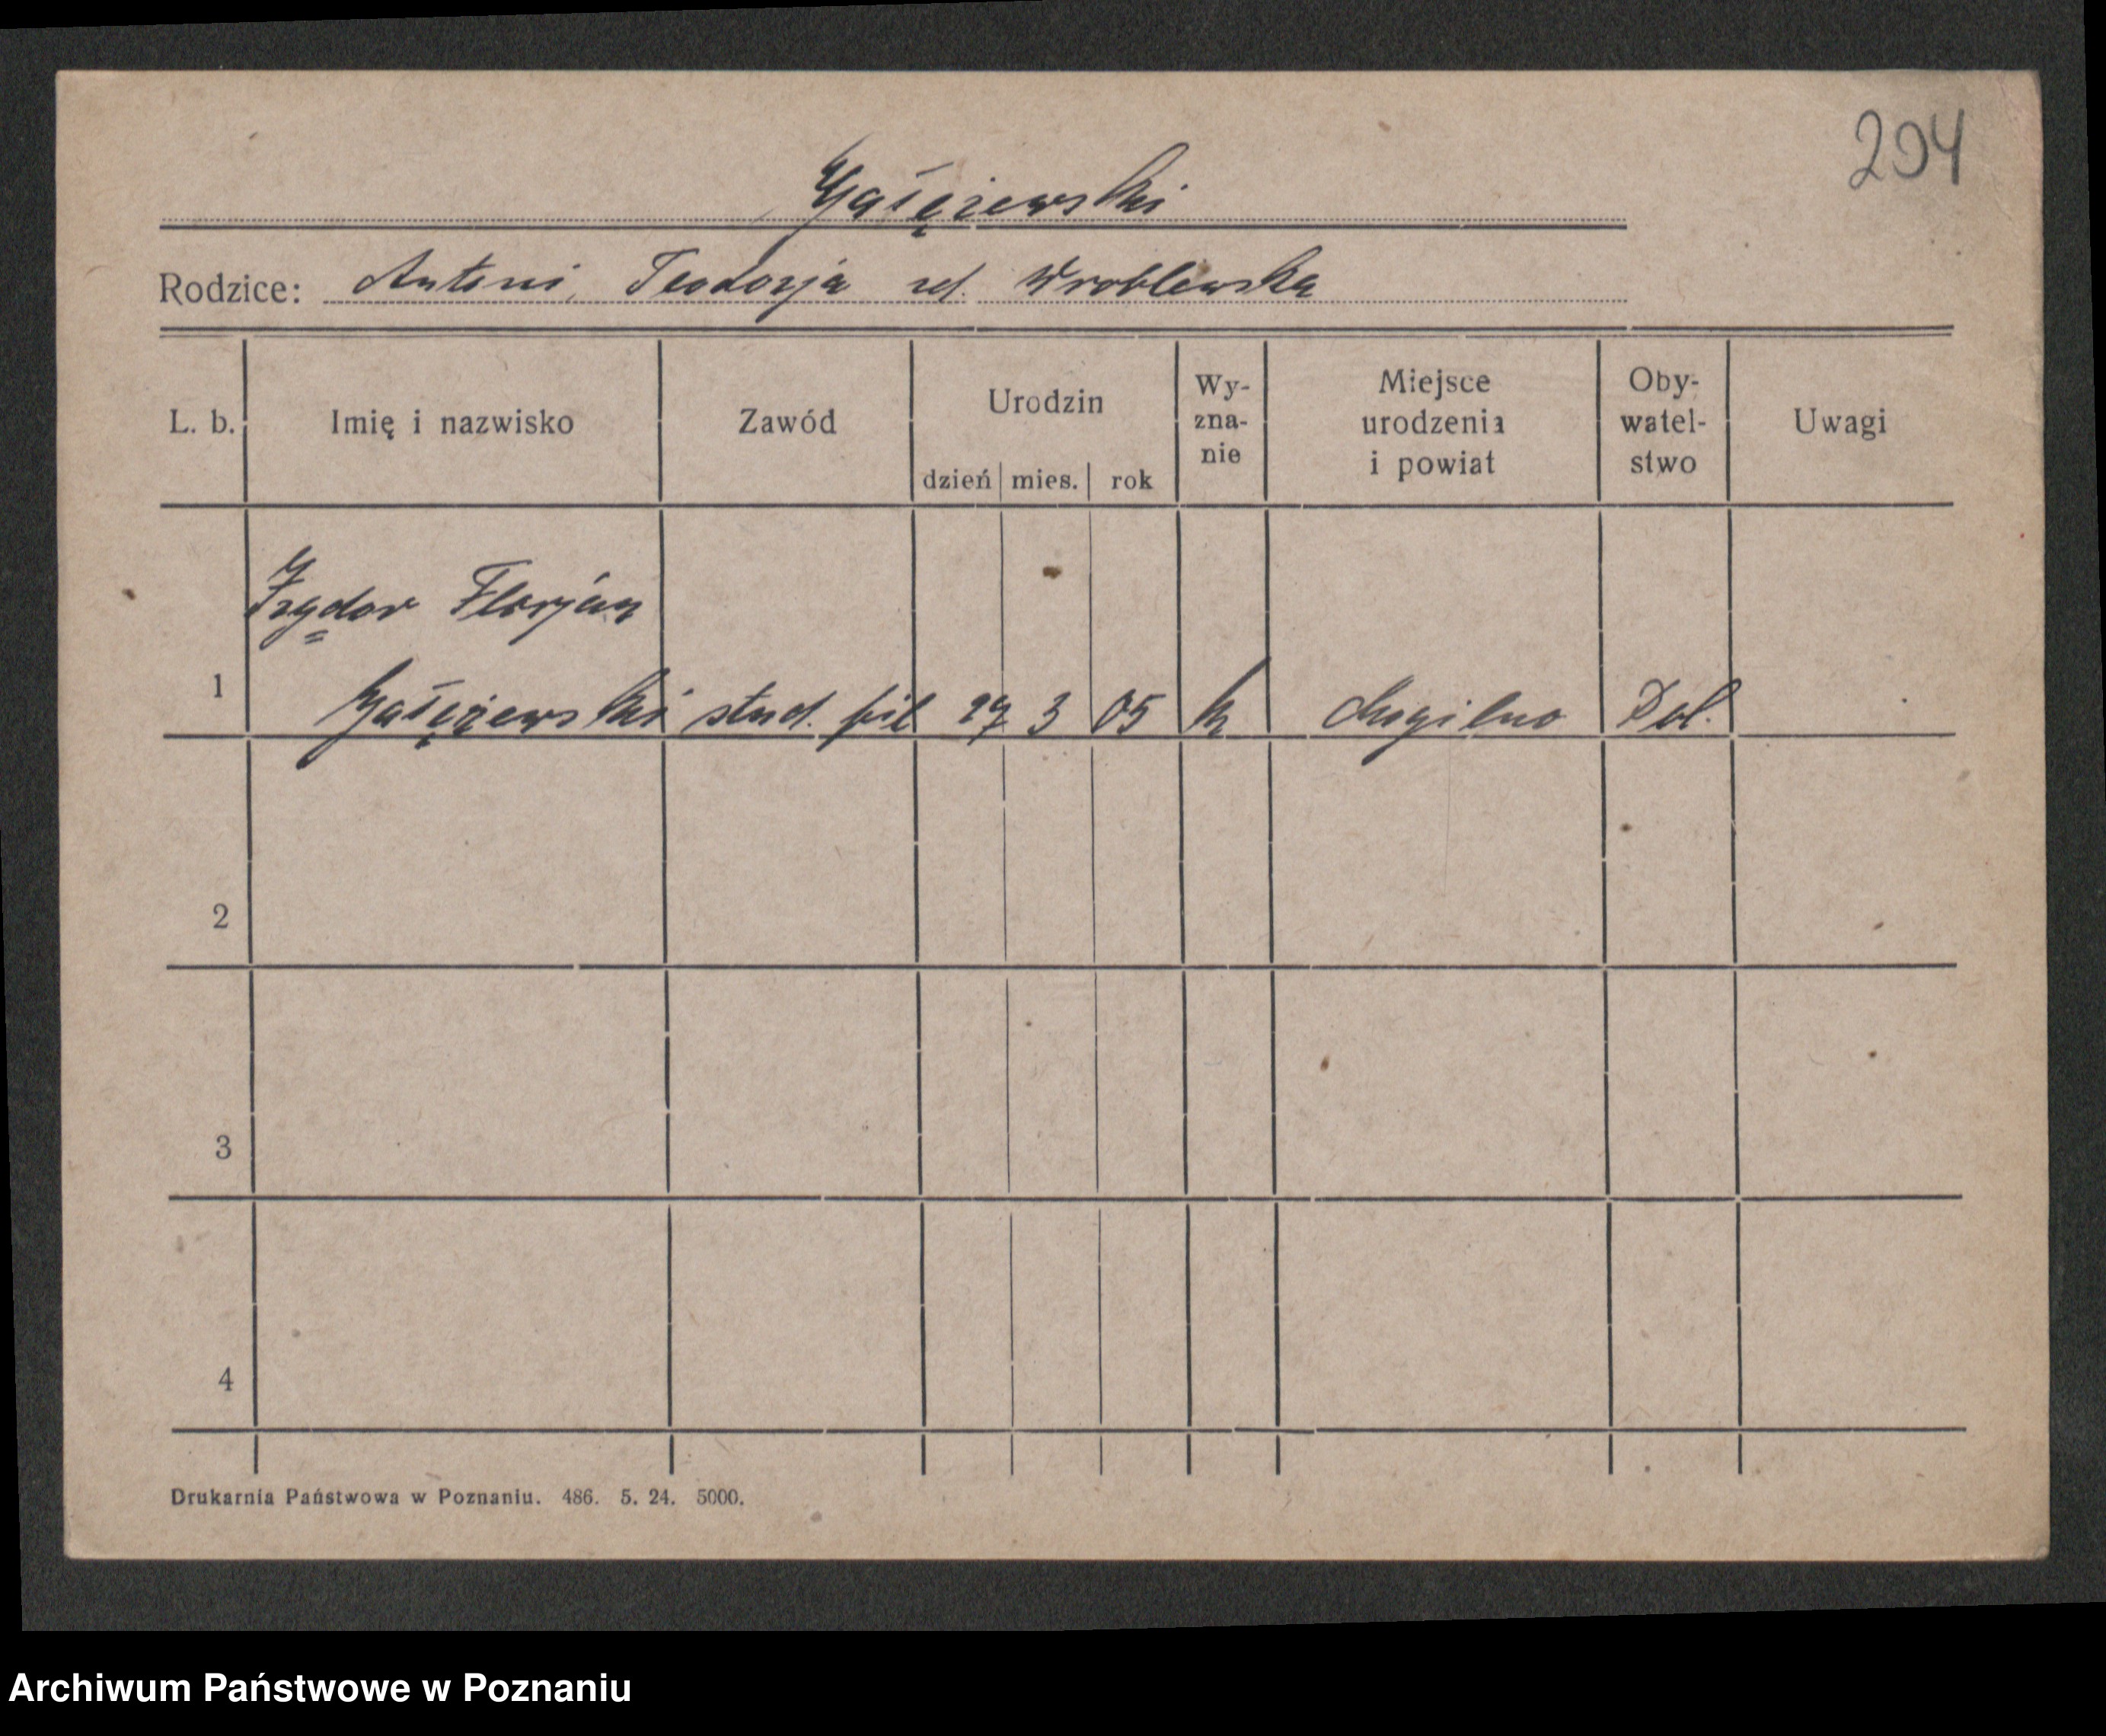 294
Gałężewski
Rodzice: Antoni, Teodozja zd. Wroblewska
L. b. Imię i nazwisko Zawód Urodzin dzień mies. rok Wy-zna-nie Miejsce urodzenia i powiat Oby-watel-stwo Uwagi
Izydor Florjan
1 Gałężewski stud. fil 27 3 05 k Mogilno Pol.
2
3
4
Drukarnia Państwowa w Poznaniu. 486. 5. 24. 5000.
Archiwum Państwowe w Poznaniu